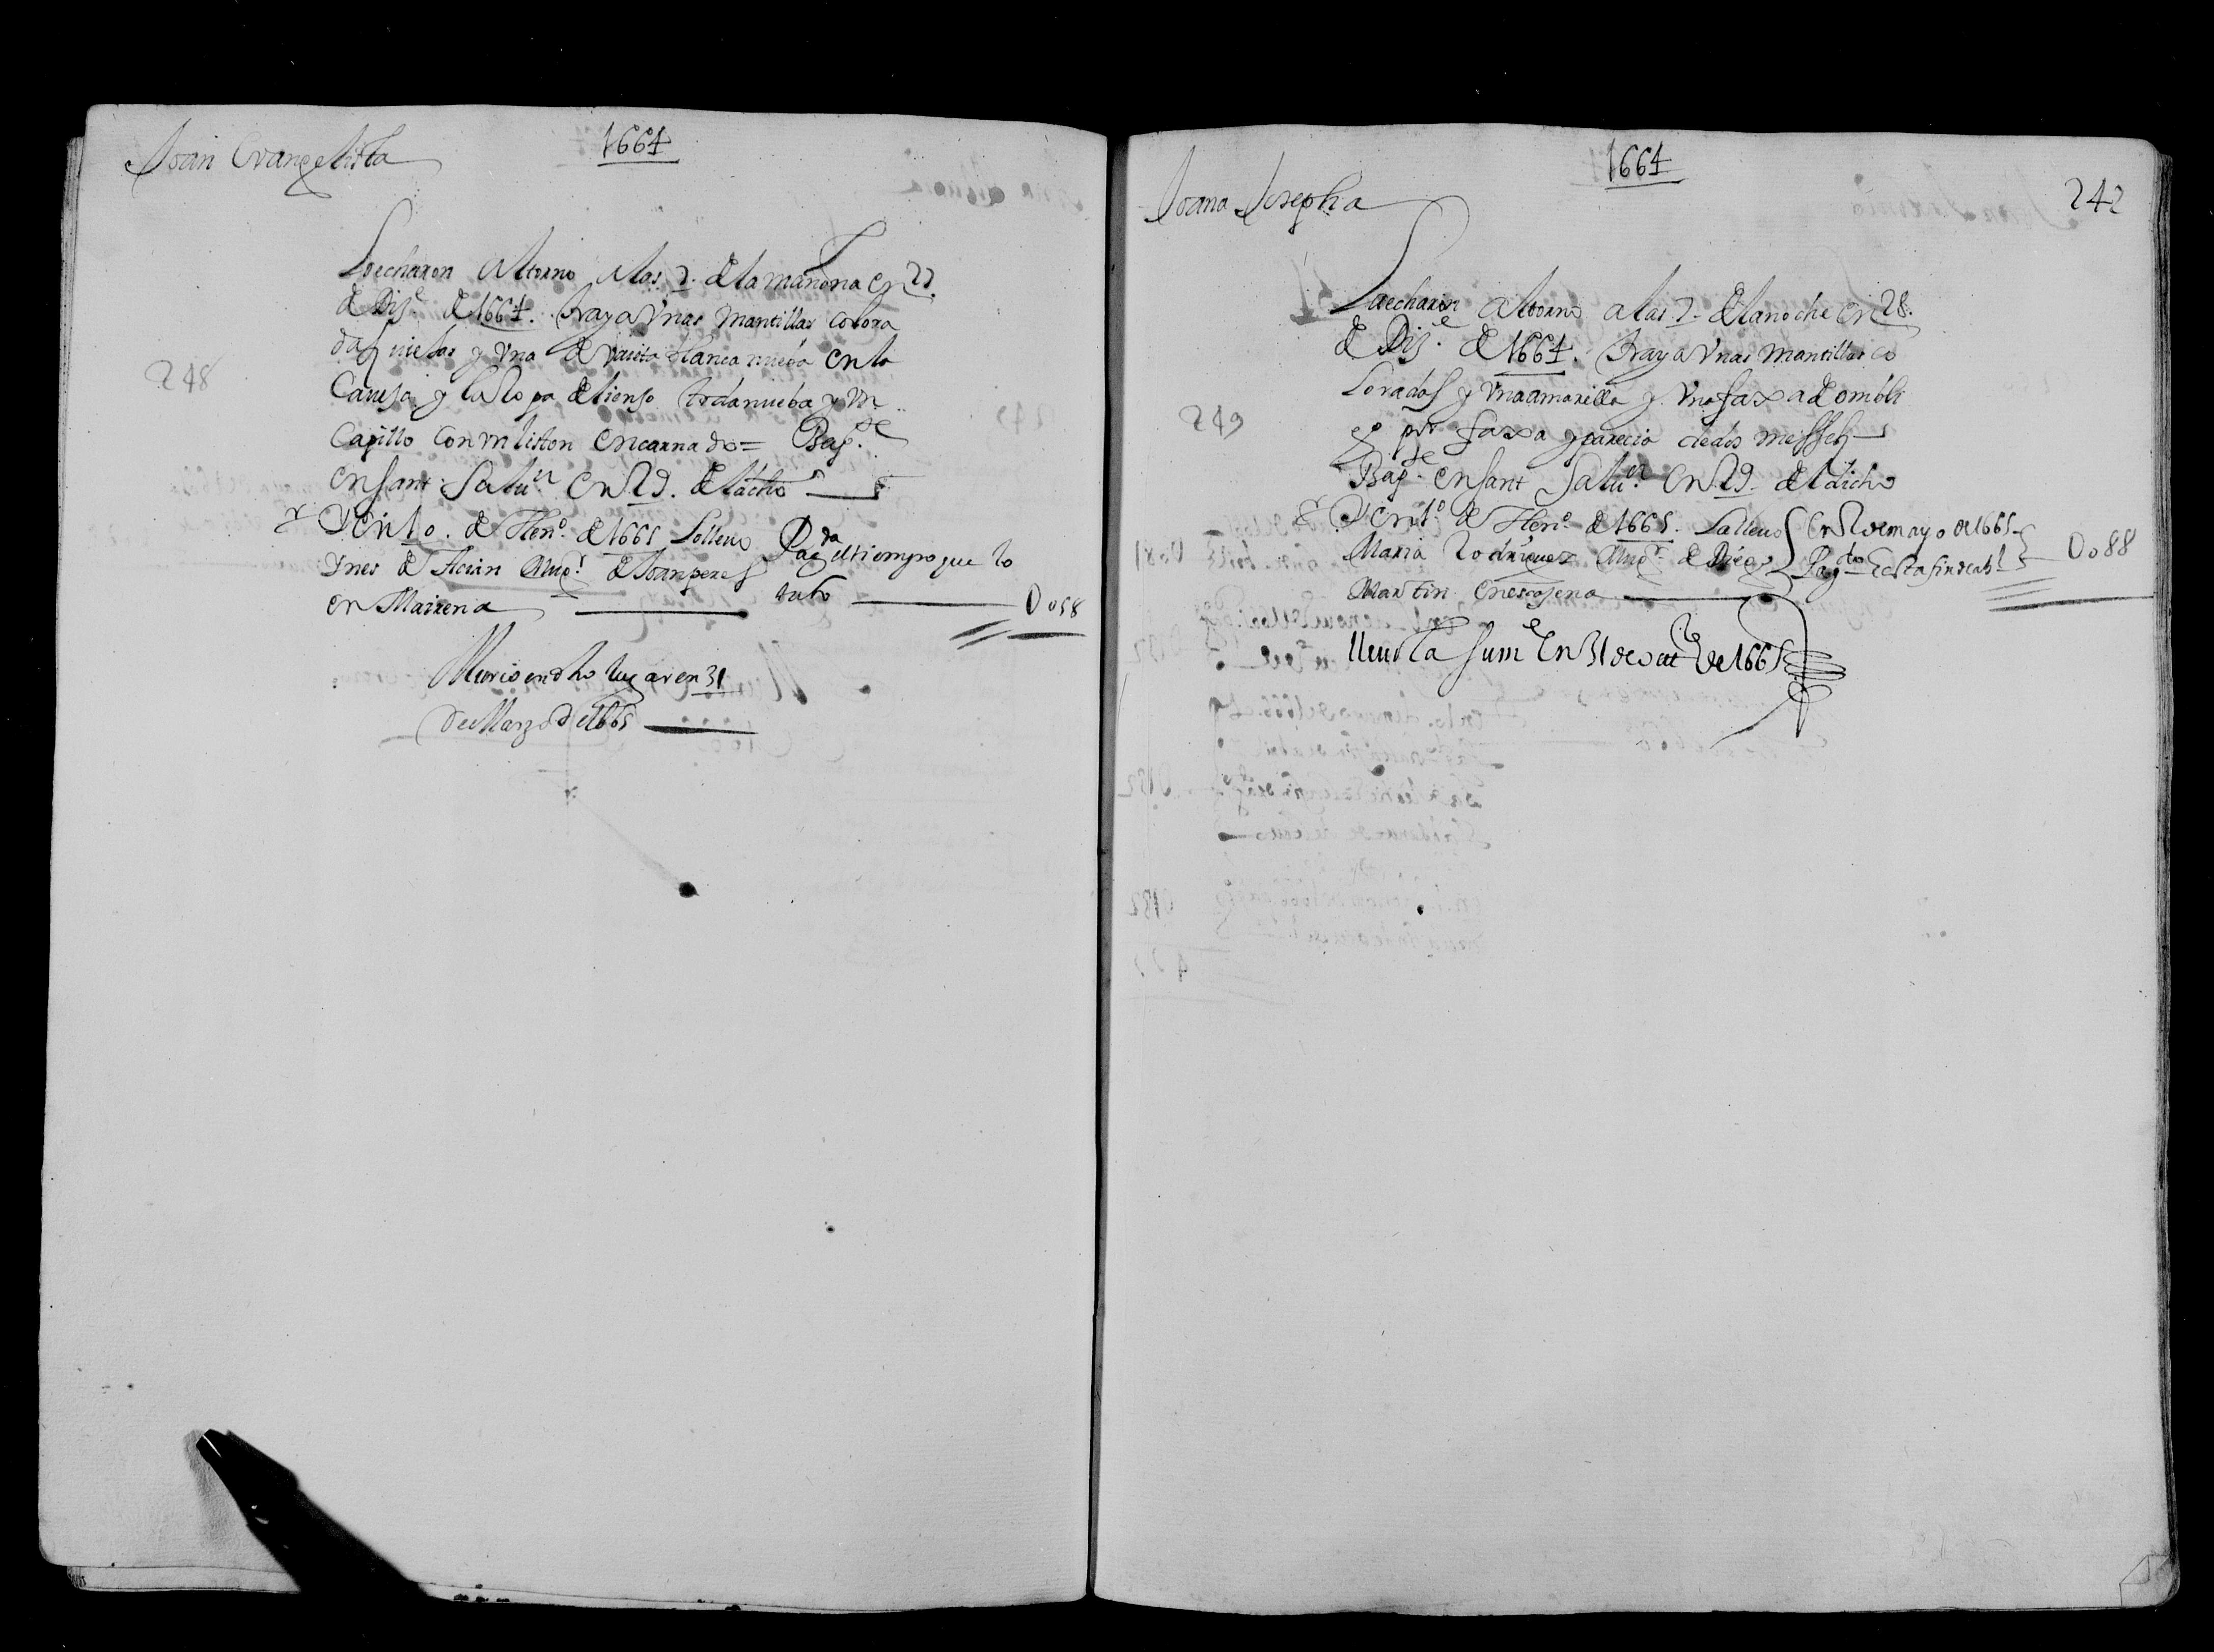 1664
Joan Evangelista
Lo echaron al torno a las 7. de la mañana en 27.
de Diz.e de 1664. traya Unas mantillas colora
das viejas y Una de blanca nueba en la
Cavesa y la Ropa de lienso toda nueba y un
Capillo con un liston encarnado = Bap.se
en Sant Salu.or en 29. de dicho
248
Y en 10. de Hen.o de 1665 lo lleuo
Ynes de muo.r de Joan peres
en Mairena
Pag.da el tiempo que lo
tubo 0058
Murio en dho lugar en 31
de Marzo de 1665
1664
242
Joana Josepha
La echaron al torno a las 7. de la noche en 28.
de Diz.e de 1664. traya Unas mantillas co
loradas y Una amarilla y Una faxa de ombli
go por faxa y parecio de dos messes
Bap.se en Sant Salu.or en 29. del dicho
249
Y en 1º de Hen.o de 1665. la lleuo
Maria Rodriguez Muo.r de Diego
Martin en escasena
en 2 de mayo de 1665
Pag.do esta fin de ab.l 0088
Murio esta en 31 de de 1665